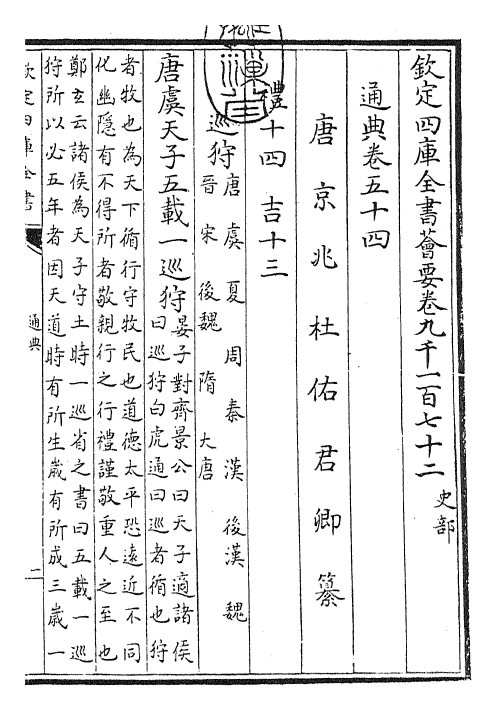 欽定四庫全書薈要卷九千一百七十二 史部
通典卷五十四
唐京兆杜佑君卿纂
禮十四 吉十三
巡狩 唐 虞 夏 周 秦 漢 後漢 魏
晉 宋 後魏 隋 大唐
唐虞天子五載一巡狩 晏子對齊景公曰天子適諸侯
曰巡狩白虎通曰巡者循也狩
者牧也為天下循行守牧民也道德太平恐遠近不同
化幽隱有不得所者敬親行之行禮謹敬重人之至也
鄭玄云諸侯為天子守土時一巡省之書曰五載一巡
狩所以必五年者因天道時有所生歲有所成三歲一
欽定四庫全書
通典
二